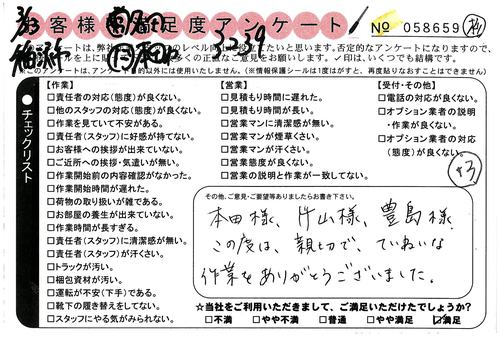 お客様満足度アンケート
No 058659
3239
※このアンケートは、アンケートの目的以外には使用いたしません。(※情報保護シールは1度はがすと、再度貼りなおすことはできません)
チェックリスト
【作業】
□責任者の対応(態度)が良くない。
□他のスタッフの対応(態度)が良くない。
□作業を見ていて不安がある。
□責任者(スタッフ)に好感が持てない。
□お客様への挨拶が出来ていない。
□ご近所への挨拶・気遣いが無い。
□作業開始前の内容確認がなかった。
□作業開始時間が遅れた。
□荷物の取り扱いが雑である。
□お部屋の養生が出来ていない。
□作業時間が長すぎる。
□責任者(スタッフ)に清潔感が無い。
□責任者(スタッフ)が汗くさい。
□トラックが汚い。
□梱包資材が汚い。
□運転が不安(下手)である。
□靴下の履き替えをしてない。
□スタッフにやる気がみられない。
【営業】
□見積もり時間に遅れた。
□見積もり時間が長い。
□営業マンに清潔感が無い。
□営業マンが煙草くさい。
□営業マンが汗くさい。
□営業態度が良くない。
□営業の説明と作業が一致してない。
【受付・その他】
□電話の対応が良くない。
□オプション業者の説明
・作業が良くない。
□オプション業者の対応
(態度)が良くない。
その他、ご意見・ご要望等ありましたらお書き下さい。
本田様、片山様、豊島様、
この度は、親切で、ていねいな
作業をありがとうございました。
☆当社をご利用いただきまして、ご満足いただけたでしょうか?
□不満 □やや不満 □普通 □やや満足 ☑満足